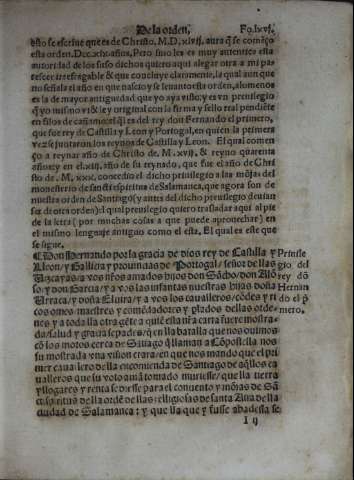 De la orden. Fo. lxvj.
esto se escriue que es de Christo. M.D.xlvij. aura q̃ se comẽço
esta orden. Dcc.xlx. años, Pero sino les es muy autentica esta
autoridad de los suso dichos quiero aqui alegar otra a mi pa
rescer irrefragable & que concluye claramente, la qual aun que
no señala el año en que nascio y se leuanto esta orden, alomenos
es la de mayor antiguedad que yo aya visto: y es vn preuilegio
q̃ yo mismo vi & ley original con la firma y sello real pendiẽte
en filos de cañamo: el q̃l es del rey don Fernando el primero,
que fue rey de Castilla y Leon y Portogal, en quien la primera
vez se juntaron los reynos de Castilla y Leon. El qual comen
ço a reynar año de Christo de. M.xvij. & reyno quarenta
años: y en el.xiij. año de su reynado, que fue el año de Chri
sto de. M.xxx. concedio el dicho preuilegio a las mõjas del
monesterio de sancti espiritus de Salamanca, que agora son de
nuestra orden de Santiago (y antes del dicho preuilegio deuian
ser de otra orden) el qual preuilegio quiero trasladar aqui al pie
de la letra (por muchas cosas a que puede aprouechar) en
el mismo lenguaje antiguo como el esta, El qual es este que
se sigue.
Don Hernando por la gracia de dios rey de Castilla y
Leon/ y Gallizia y prouincias de Portogal/ señor de llas
Vizcayas/ a vos nr̃os amados hijos don Sãcho/ don Alõ
so y don Garcia/ y a vos las infantas nuestras hijas doña
Urraca/ y doña Eluira/ y a vos los caualleros/ cõdes y ri
cos omes/ maestres y comẽdadores y plados dellas orde-
nes/ y a toda lla otra gẽte a quiẽ esta nr̃a carta fuere mostra
da/ salud y gracia: sepades/ q̃ en lla batalla que nos ouimos
cõ los moros cerca de Sãtiago q̃ llaman a Cõpostella nos
fu mostrada vna vision crara/ en que nos mando que el pri
mer cauallero della encomienda de Santiago de aq̃llos ca
ualleros que su voto auiã tomado muriesse/ que lla tierra
y llogares y renta se diesse para el conuento y mõjas de Sã
cti spiritus de lla ordẽ de llas religiosas de santa Ana de lla
ciudad de Salamanca: y que lla que y fuesse abadessa se
I ij
Preuile
gio del
rey dõ
Hernan
do el p̃
mero.